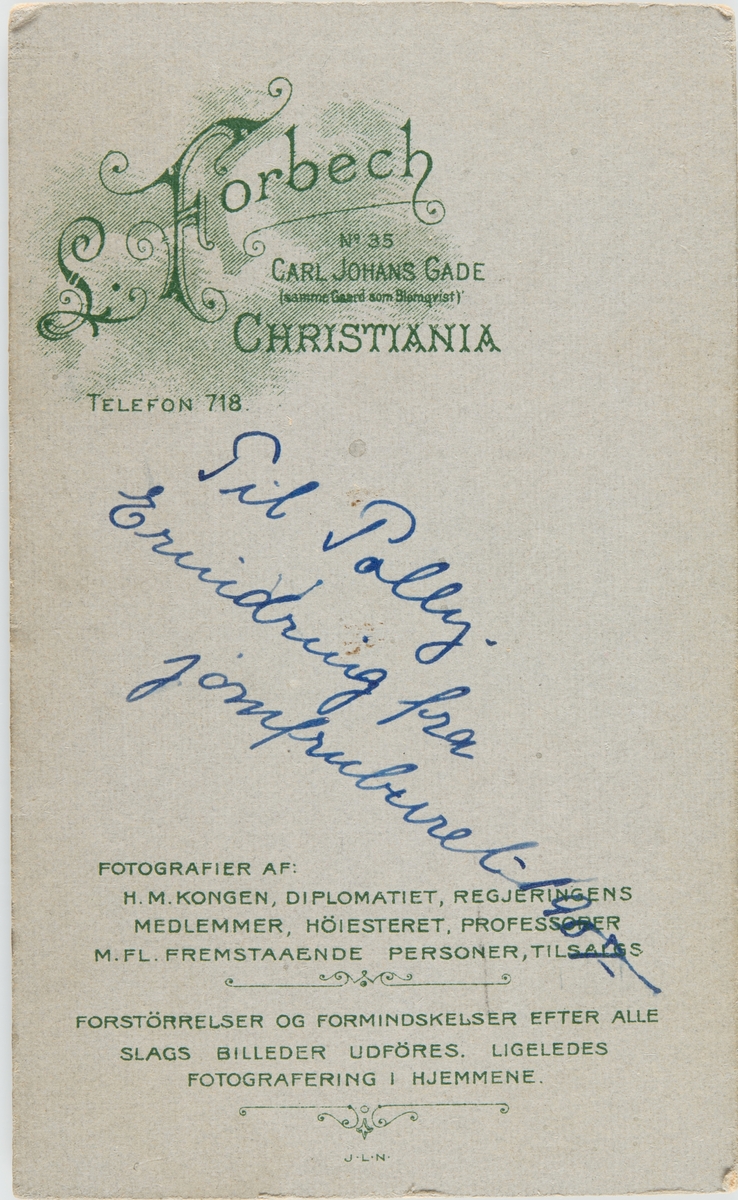 L. Forbech
No 35
CARL JOHANS GADE
(samme Gaard som Blomqvist)
CHRISTIANIA
TELEFON 718.
Til Polly.
Erindring fra
jomfruburet
FOTOGRAFIER AF:
H. M. KONGEN, DIPLOMATIET, REGJERINGENS
MEDLEMMER, HÖIESTERET, PROFESSORER
M. FL. FREMSTAAENDE PERSONER, TILSALGS
FORSTÖRRELSER OG FORMINDSKELSER EFTER ALLE
SLAGS BILLEDER UDFÖRES. LIGELEDES
FOTOGRAFERING I HJEMMENE.
J.L.N.